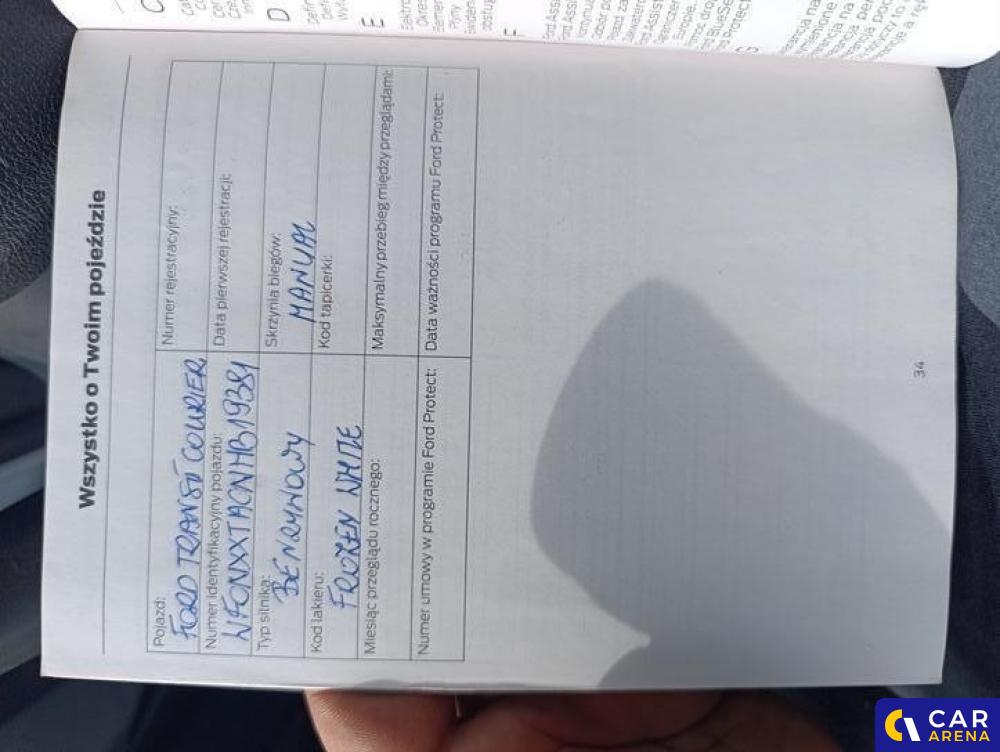 Wszystko o Twoim pojeździe
Pojazd:
FORD TRANSIT COURIER
Numer rejestracyjny:
Numer identyfikacyjny pojazdu:
WF0NXXTACNHB19381
Data pierwszej rejestracji:
Typ silnika:
BENZYNOWY
Skrzynia biegów:
MANUAL
Kod lakieru:
FROZEN WHITE
Kod tapicerki:
Miesiąc przeglądu rocznego:
Maksymalny przebieg między przeglądami:
Numer umowy w programie Ford Protect:
Data ważności programu Ford Protect:
34
C
D
E
F
G
CAR
ARENA